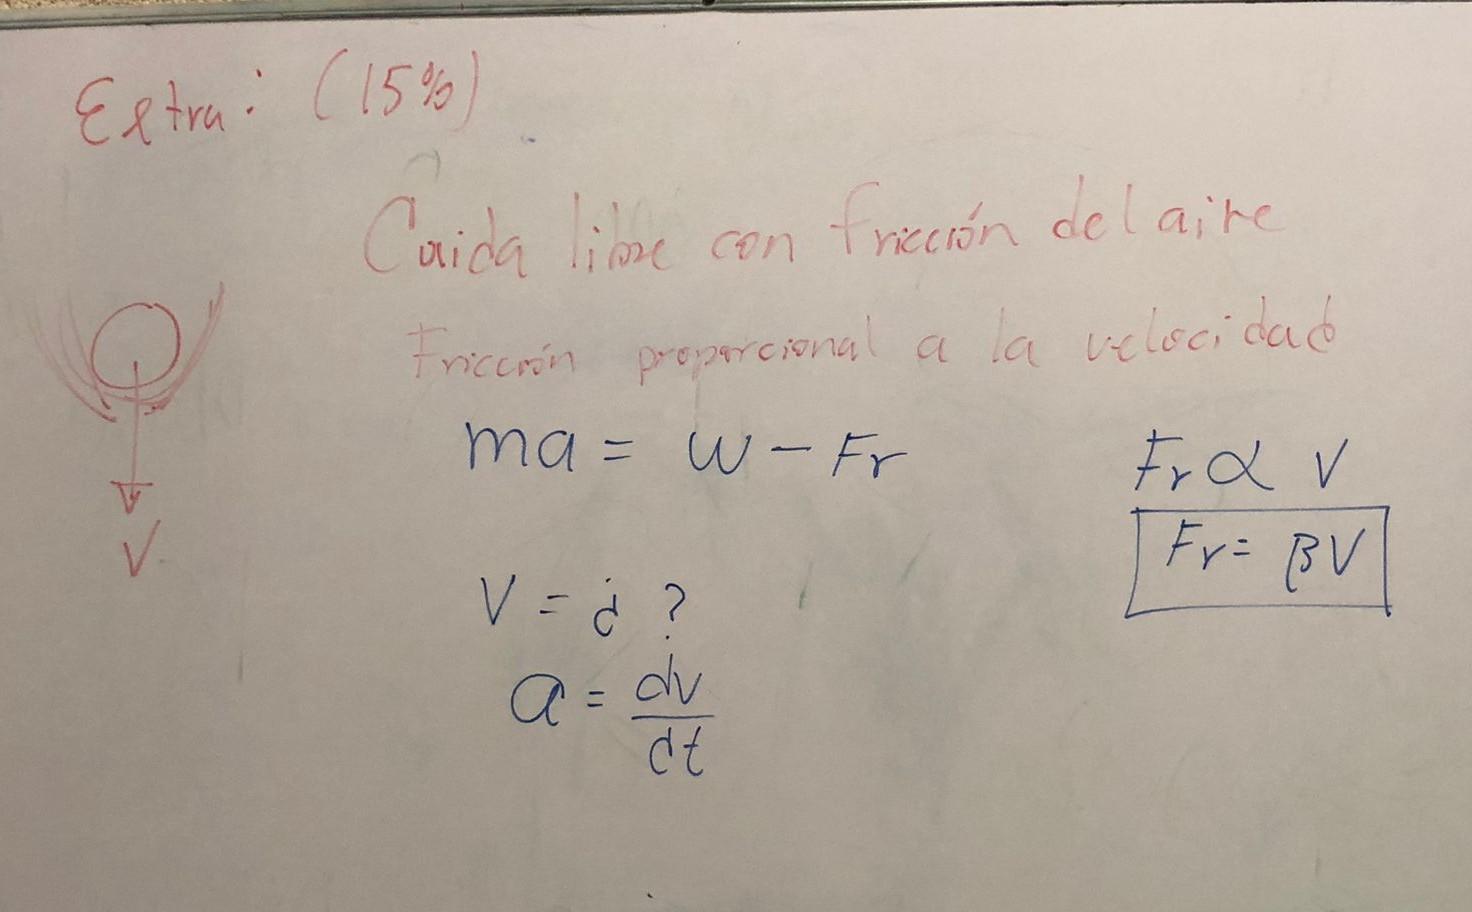 Extra: (15%)
Caida libre con fricción del aire
Fricción proporcional a la velocidad
ma = W - Fr
Fr α V
Fr = βV
V = ¿ ?
a = dv/dt
V